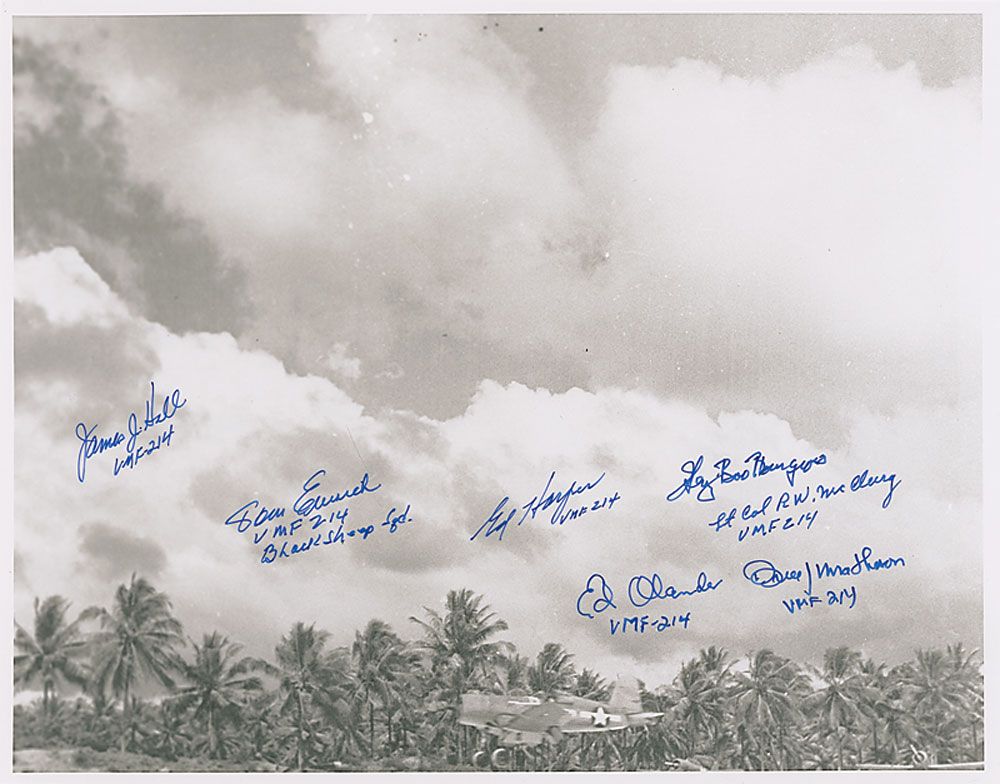 James J. Hall
VMF-214
Tom Emrich
VMF 214
Black Sheep Sqd.
Ed Harper
VMF 214
Lt Col R.W. McClurg
VMF 214
Ed Olander
VMF-214
VMF 214